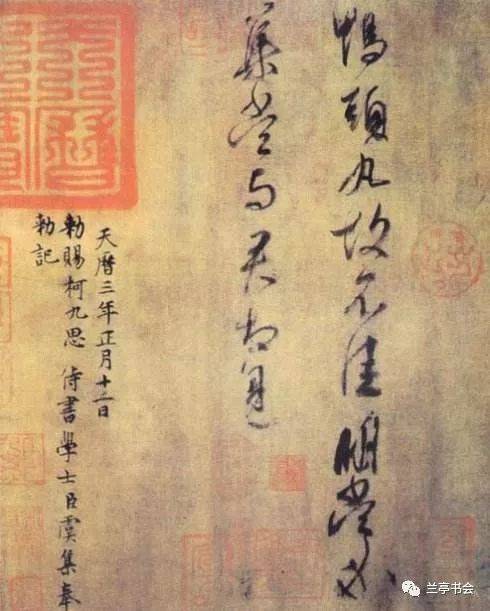 鴨頭丸故不佳明當必
集當与君相見
天曆三年正月十二日
勑賜柯九思 侍書學士臣虞集奉
勑記
兰亭书会